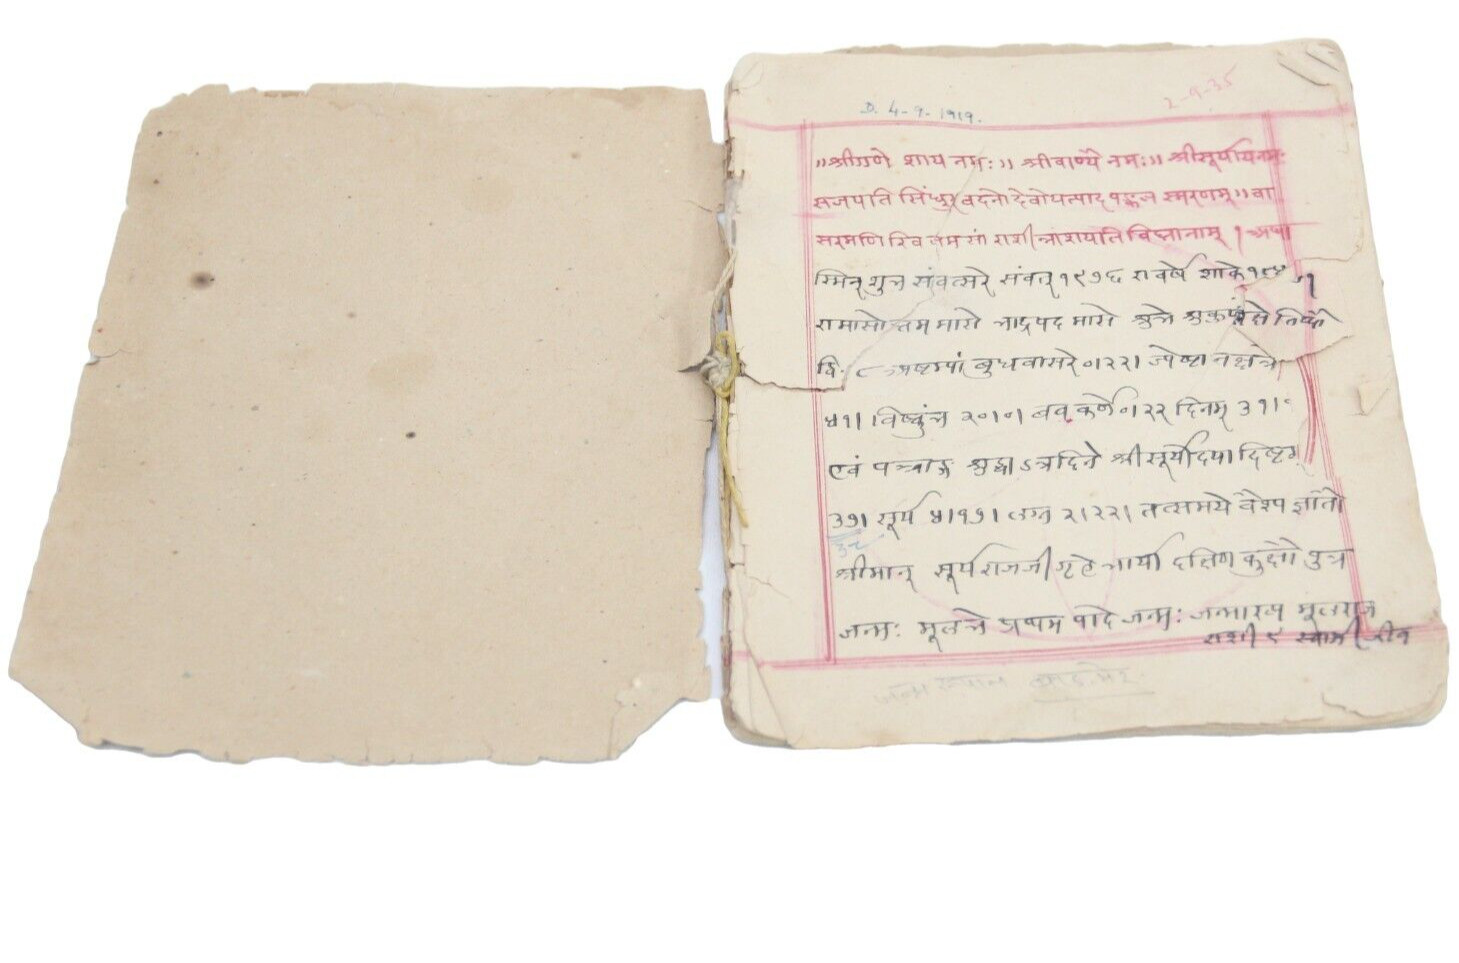 D. 4-9-1919.
2-9-35
॥श्रीगणे शाय नमः॥ श्रीवाण्यै नमः॥ श्रीसूर्यायनमः
सजयति सिंधुर वदनो देवोयत्पाद पङ्कज स्मरणम्॥ वा
सरमणि रिव तमसां राशीन्नाशयति विघ्नानाम् । अथा
स्मिन् शुभ संवत्सरे संवत् १९७६ रा वर्षे शाके १८४१
रा मासोत्तम मासे भाद्रपद मासे शुभे शुक्लपक्षे तिथौ
८ अष्टम्यां बुधवासरे ०।२२। ज्येष्ठा नक्षत्रे
४१। विष्कुंभ २०।०। बव कर्ण ०।२२ दिनम् ३१।
एवं पञ्चाङ्ग शुद्धाऽत्रदिने श्री सूर्योदया दिष्टम्
३७। सूर्य ४।१७। लग्न २।२२। तत्समये वैश्य ज्ञातौ
श्रीमान् सूर्यराजजी गृहे भार्या दक्षिण कुक्षौ पुत्र
जन्मः मूलभे प्रथम पादे जन्मः जन्माख्य मूलराज
राशी ९ स्वामी जीव
जन्म स्थान